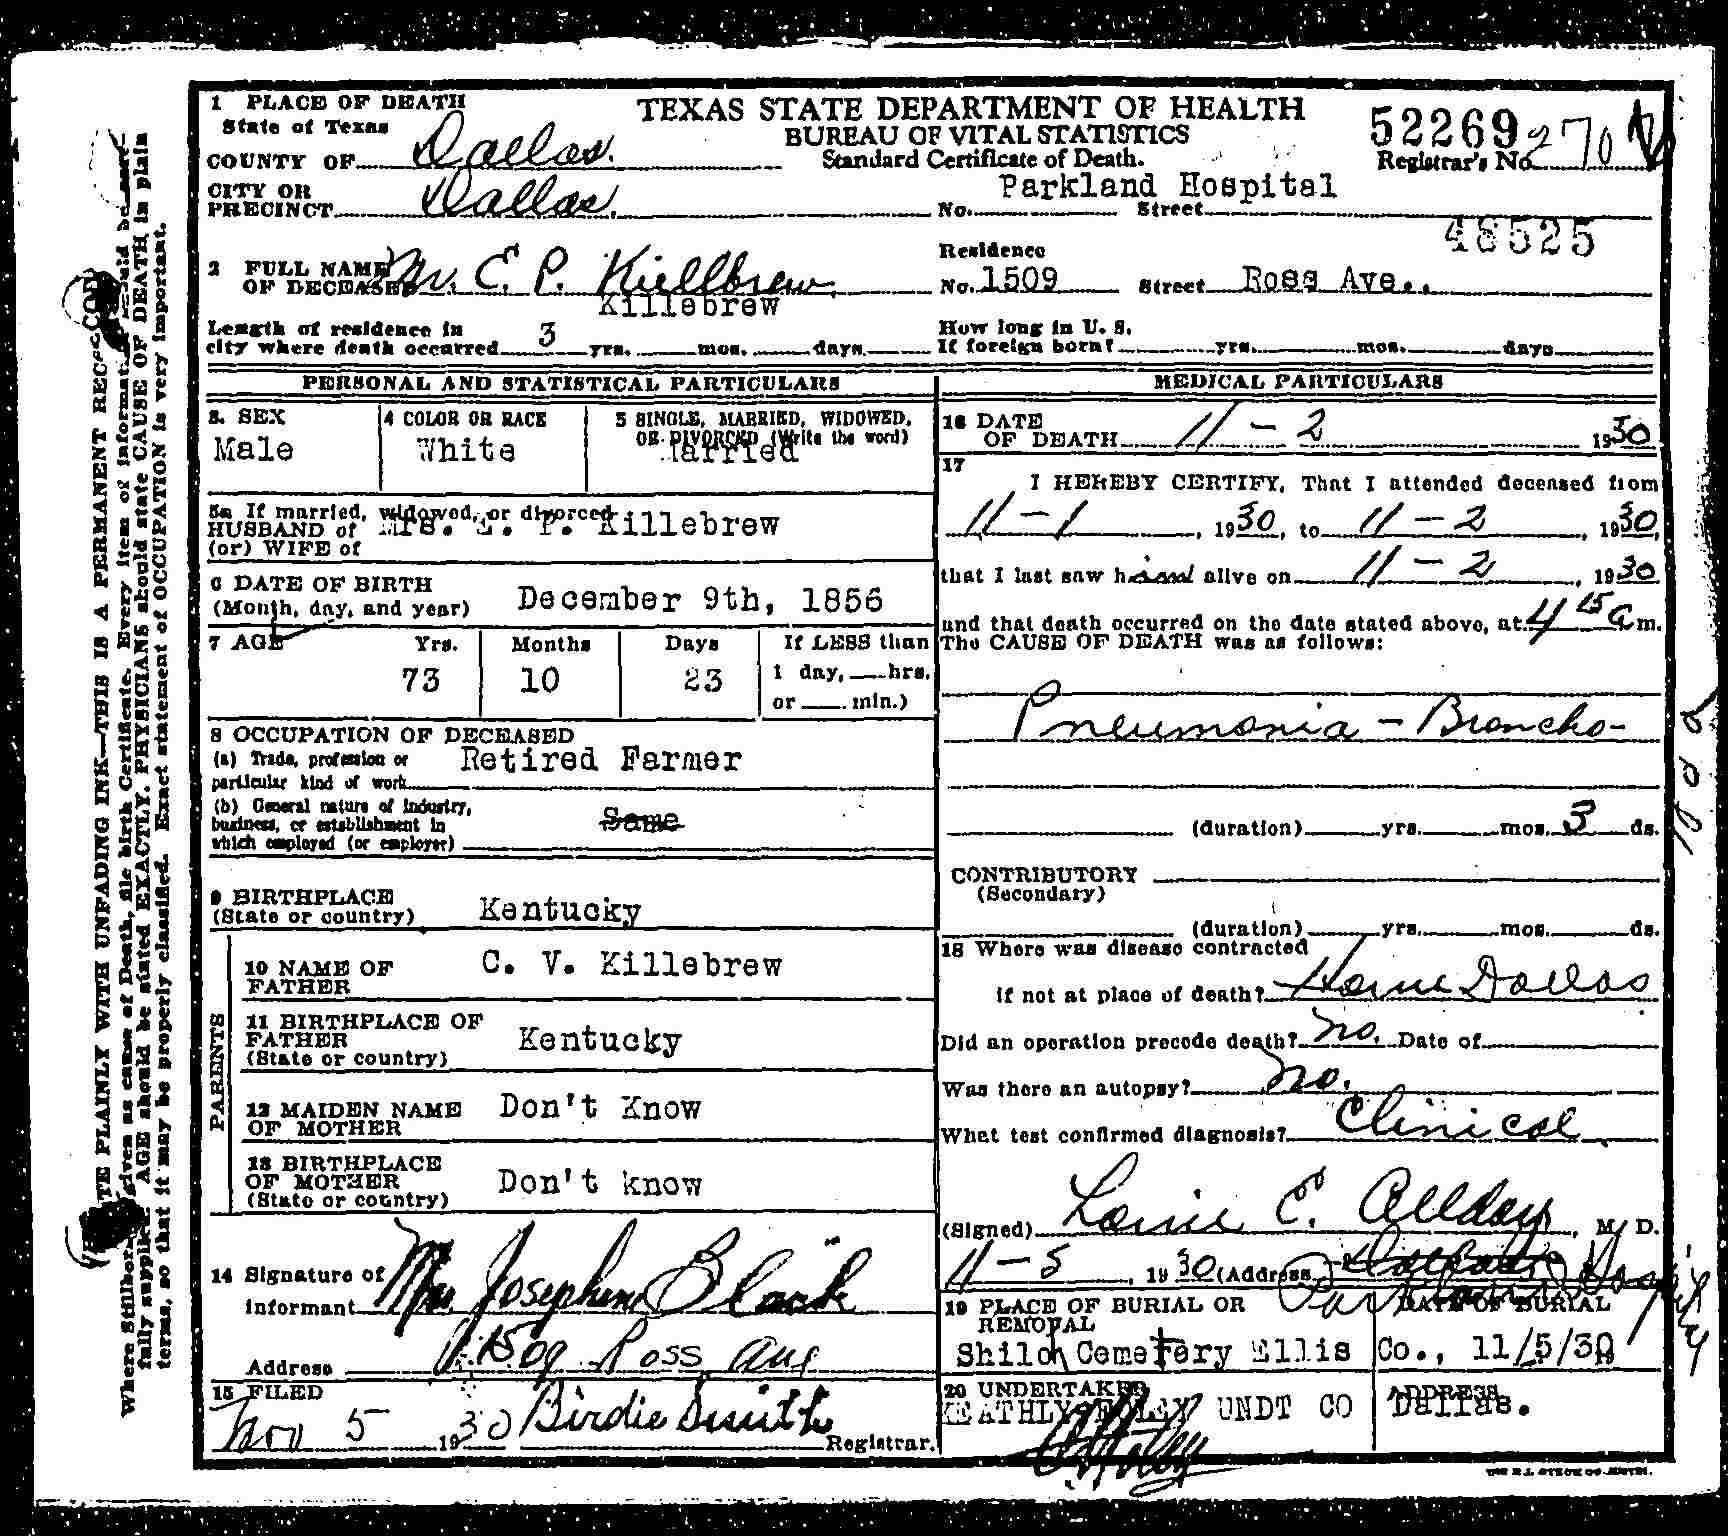 1 PLACE OF DEATH
State of Texas
COUNTY OF Dallas.
CITY OR
PRECINCT Dallas.
TEXAS STATE DEPARTMENT OF HEALTH
BUREAU OF VITAL STATISTICS
Standard Certificate of Death.
52269
Registrar's No. 270
Parkland Hospital
No. Street
48525
2 FULL NAME
OF DECEASED Mr. E. P. Kiellbrew
Killebrew
Residence
No. 1509 Street Ross Ave..
Length of residence in
city where death occurred 3 yrs. mos. days.
How long in U. S.
If foreign born? yrs. mos. days
PERSONAL AND STATISTICAL PARTICULARS
3. SEX
Male
4 COLOR OR RACE
White
5 SINGLE, MARRIED, WIDOWED,
OR DIVORCED (Write the word)
Married
5a If married, widowed, or divorced
HUSBAND of Mrs. E. P. Killebrew
(or) WIFE of
6 DATE OF BIRTH
(Month, day, and year) December 9th, 1856
7 AGE Yrs. Months Days If LESS than
73 10 23 1 day, hrs.
or min.)
8 OCCUPATION OF DECEASED
(a) Trade, profession or Retired Farmer
particular kind of work
(b) General nature of industry,
business, or establishment in Same
which employed (or employer)
9 BIRTHPLACE
(State or country) Kentucky
PARENTS
10 NAME OF C. V. Killebrew
FATHER
11 BIRTHPLACE OF
FATHER Kentucky
(State or country)
12 MAIDEN NAME Don't Know
OF MOTHER
13 BIRTHPLACE
OF MOTHER Don't know
(State or country)
14 Signature of
Informant Mrs. Josephine Black
Address 1509 Ross Ave
15 FILED
Nov 5 1930 Birdie Smith
Registrar.
MEDICAL PARTICULARS
16 DATE
OF DEATH 11 - 2 1930
17
I HEREBY CERTIFY, That I attended deceased from
11 - 1, 1930, to 11 - 2, 1930,
that I last saw him alive on 11 - 2, 1930
and that death occurred on the date stated above, at 4 15 a m.
The CAUSE OF DEATH was as follows:
Pneumonia - Broncho-
(duration) yrs. mos. 3 ds.
CONTRIBUTORY
(Secondary)
(duration) yrs. mos. ds.
18 Where was disease contracted
if not at place of death? Home Dallas
Did an operation precede death? No. Date of
Was there an autopsy? No.
What test confirmed diagnosis? Clinical
(Signed) E. Allday, M. D.
11 - 5, 1930 (Address Parkland Hospital
19 PLACE OF BURIAL OR
REMOVAL
DATE OF BURIAL
Shiloh Cemetery Ellis Co., 11/5/30
20 UNDERTAKER
UNDT CO
ADDRESS
Dallas.
WRITE PLAINLY WITH UNFADING INK—THIS IS A PERMANENT RECORD
Where Stillborn given as cause of Death, file birth Certificate. Every item of information should be care-
fully supplied. AGE should be stated EXACTLY. PHYSICIANS should state CAUSE OF DEATH in plain
terms, so that it may be properly classified. Exact statement of OCCUPATION is very important.